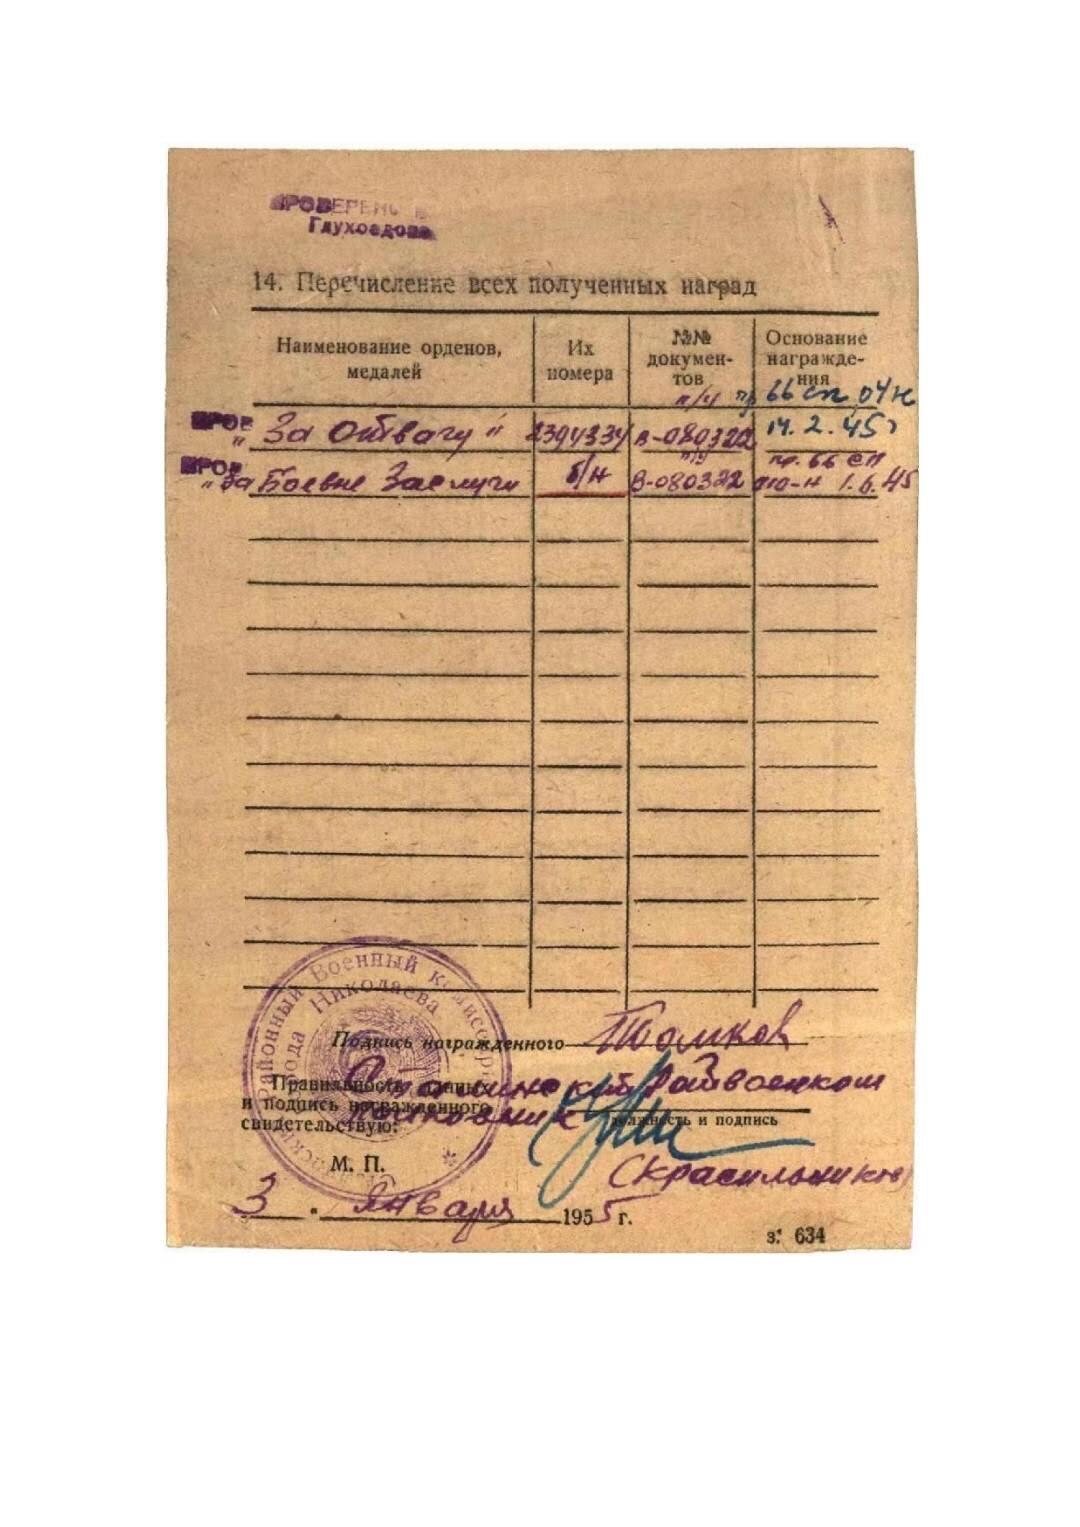 ПРОВЕРЕНО
Глухоедова
14. Перечисление всех полученных наград
Наименование орденов, медалей
Их номера
№№ документов
Основание награждения
п/у пр 66 сп 04н
ПРОВ
„За отвагу" 2394334 В-080322 14.2.45г
ПРОВ п/у пр. 66 сп
„За Боевые Заслуги б/н В-080322 010-н 1.6.45
Районный Военный комиссариат
города Николаева
Подпись награжденного
Правильность данных
и подпись награжденного
свидетельствую:
Сталинский Райвоенком
Полковник
должность и подпись
М. П.
(Красильников)
3 " Января 1955 г.
з. 634